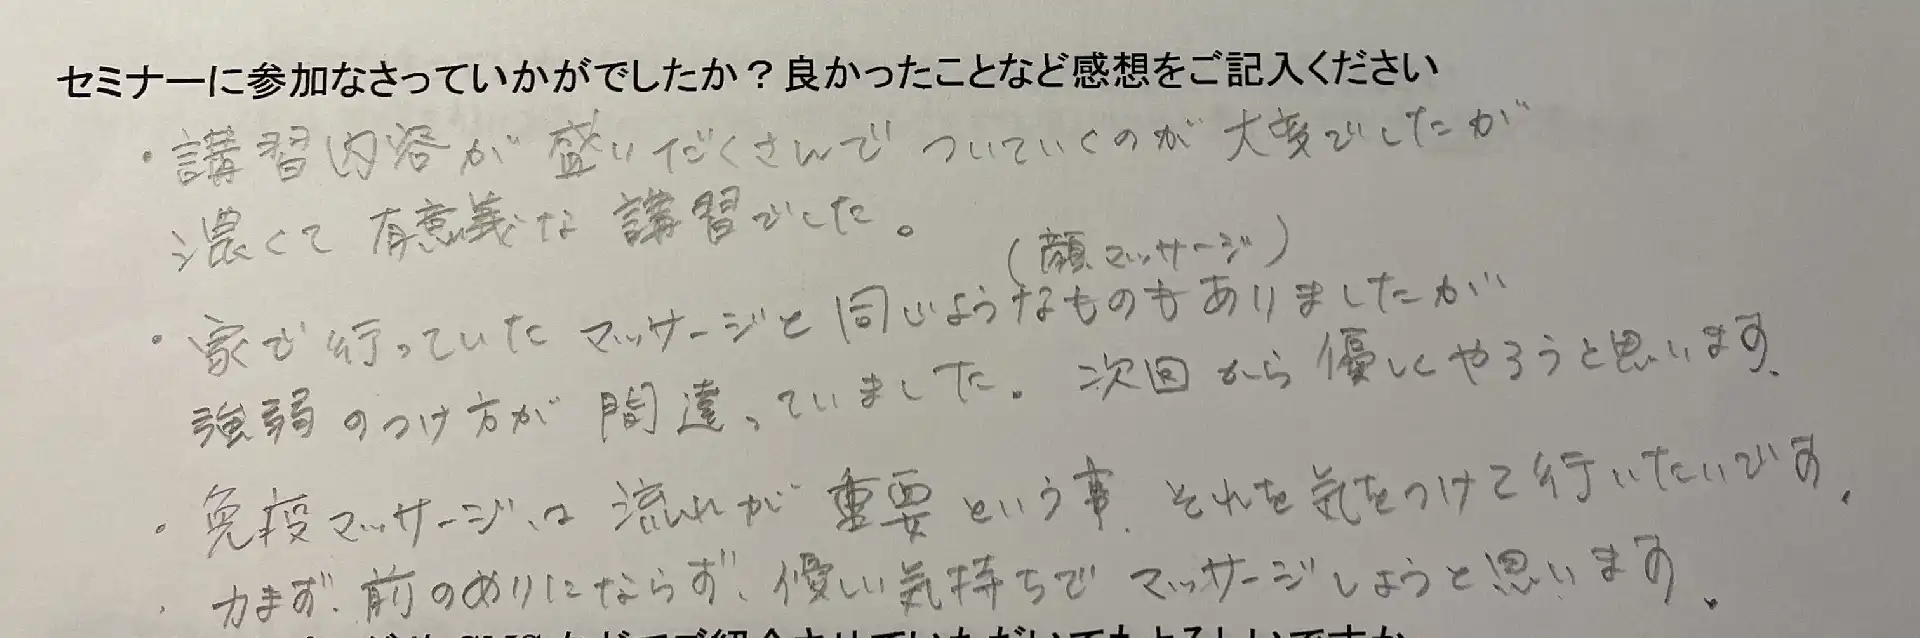 セミナーに参加なさっていかがでしたか？良かったことなど感想をご記入ください
・講習内容が盛りだくさんでついていくのが大変でしたが
濃くて有意義な講習でした。
(顔マッサージ)
・家で行っていたマッサージと同じようなものもありましたが
強弱のつけ方が間違っていました。次回から優しくやろうと思います。
・免疫マッサージは流れが重要という事、それを気をつけて行いたいです。
・力まず、前のめりにならず、優しい気持ちでマッサージしようと思います。